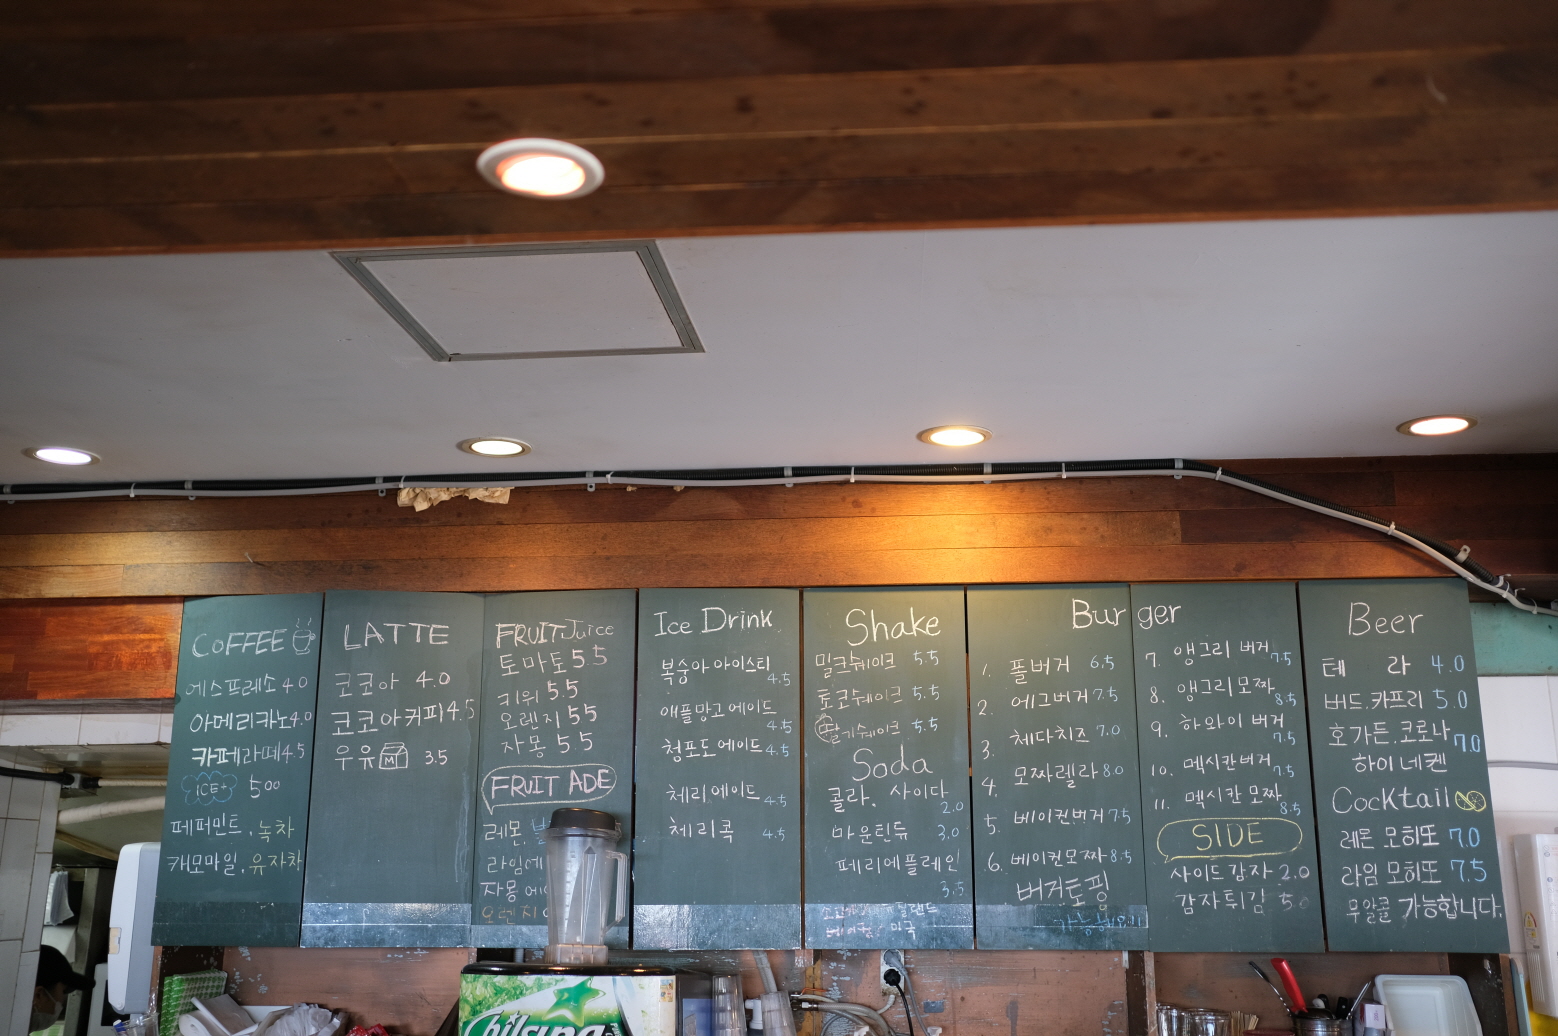 COFFEE
에스프레소 4.0
아메리카노 4.0
카페라떼 4.5
ICE+ 500
페퍼민트. 녹차
캐모마일. 유자차
LATTE
코코아 4.0
코코아커피 4.5
우유 M 3.5
FRUIT Juice
토마토 5.5
키위 5.5
오렌지 5.5
자몽 5.5
FRUIT ADE
레몬.
라임에
자몽 에이
오렌지
Ice Drink
복숭아 아이스티
4.5
애플망고 에이드
4.5
청포도 에이드 4.5
체리 에이드 4.5
체리콕 4.5
Shake
밀크쉐이크 5.5
쵸코쉐이크 5.5
딸기쉐이크 5.5
Soda
콜라. 사이다
2.0
마운틴듀 3.0
페리에플레인
3.5
미국
Burger
1. 풀버거 6.5
2. 에그버거 7.5
3. 체다치즈 7.0
4. 모짜렐라 8.0
5. 베이컨버거 7.5
6. 베이컨모짜 8.5
버거토핑
7. 앵그리 버거
7.5
8. 앵그리모짜
8.5
9. 하와이 버거
7.5
10. 멕시칸버거 7.5
11. 멕시칸 모짜
8.5
SIDE
사이드감자 2.0
감자튀김 5.0
Beer
테 라 4.0
버드.카프리 5.0
호가든.코로나
7.0
하이네켄
Cocktail
레몬 모히또 7.0
라임 모히또 7.5
무알콜 가능합니다.